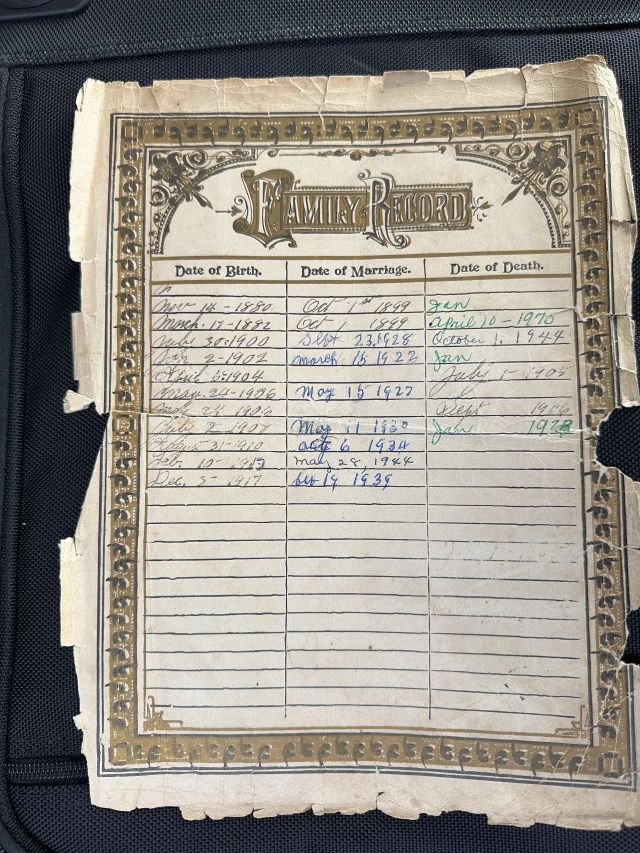 FAMILY RECORD
Date of Birth. Date of Marriage. Date of Death.
Nov 14 - 1880. Oct 1st 1899 Jan
March. 17 - 1882 Oct 1 1899 April 10 - 1970
July 30 - 1900 Sept 23, 1928 October 1, 1944
Jan 2 - 1902 march 18 1922 Jan
April 5 - 1904 July 1905
24 - 1906 May 15 1927
24 1906 Sept 1906
2 - 1908 May 11 1930 Jan
31 - 1910 6 1934
Feb. 10 - may 28, 1944
Dec. 3 - 1917 19 1939